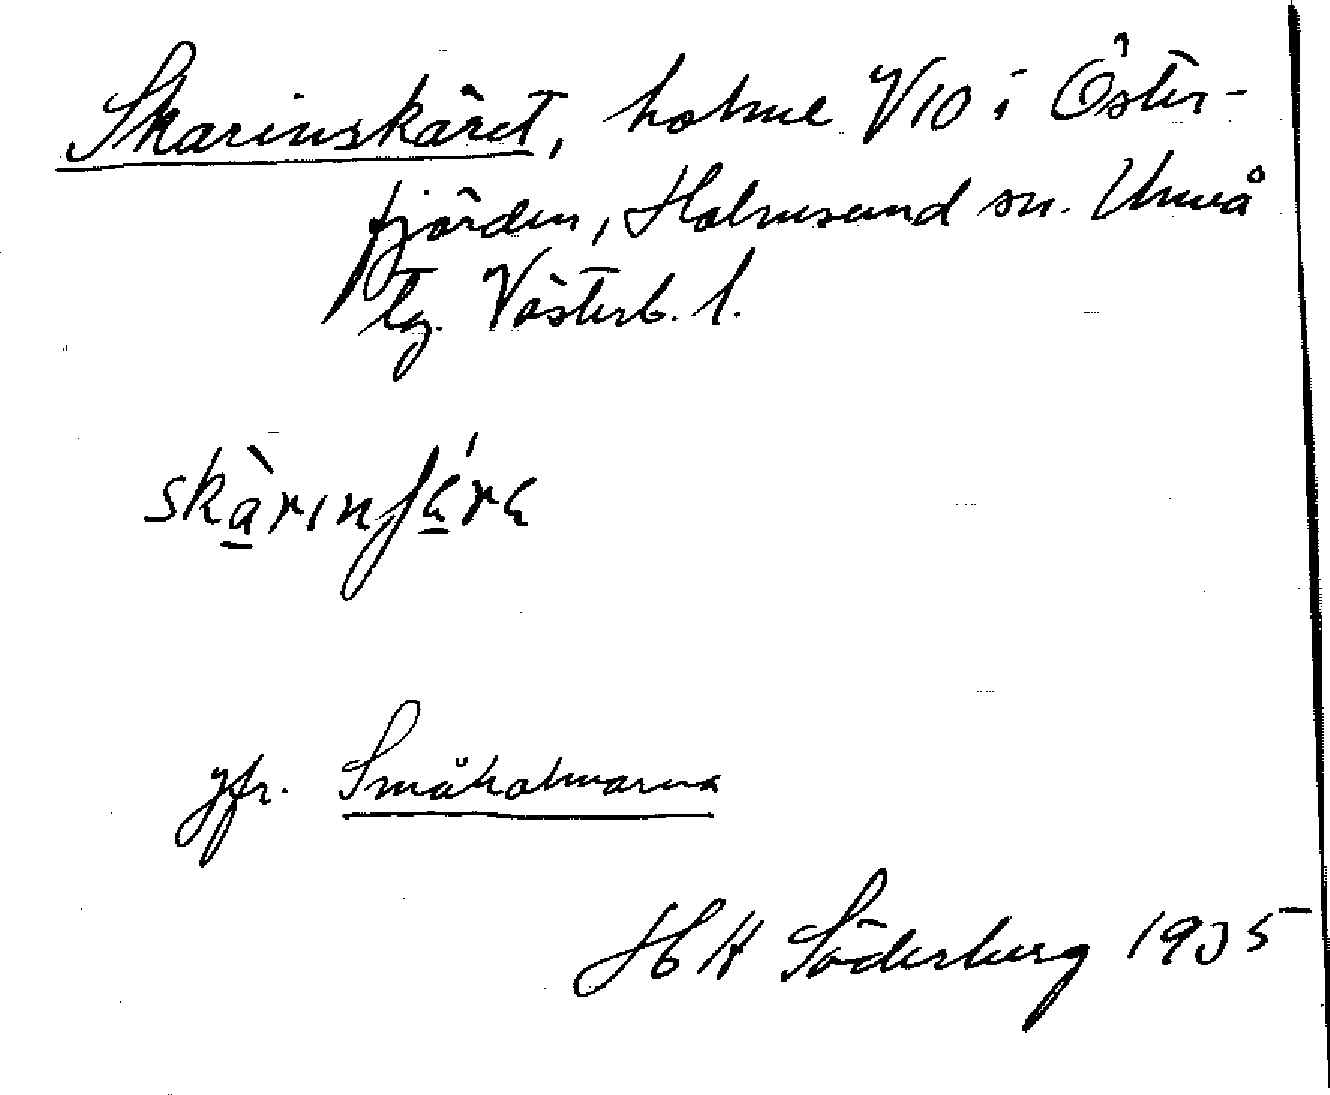 Skarinskäret, holme V10 i Öster-
fjärden, Holmsund sn. Umeå
tg. Västerb. l.
skàrinʃǽrɛ
jfr. Småholmarna
H H Söderberg 1935